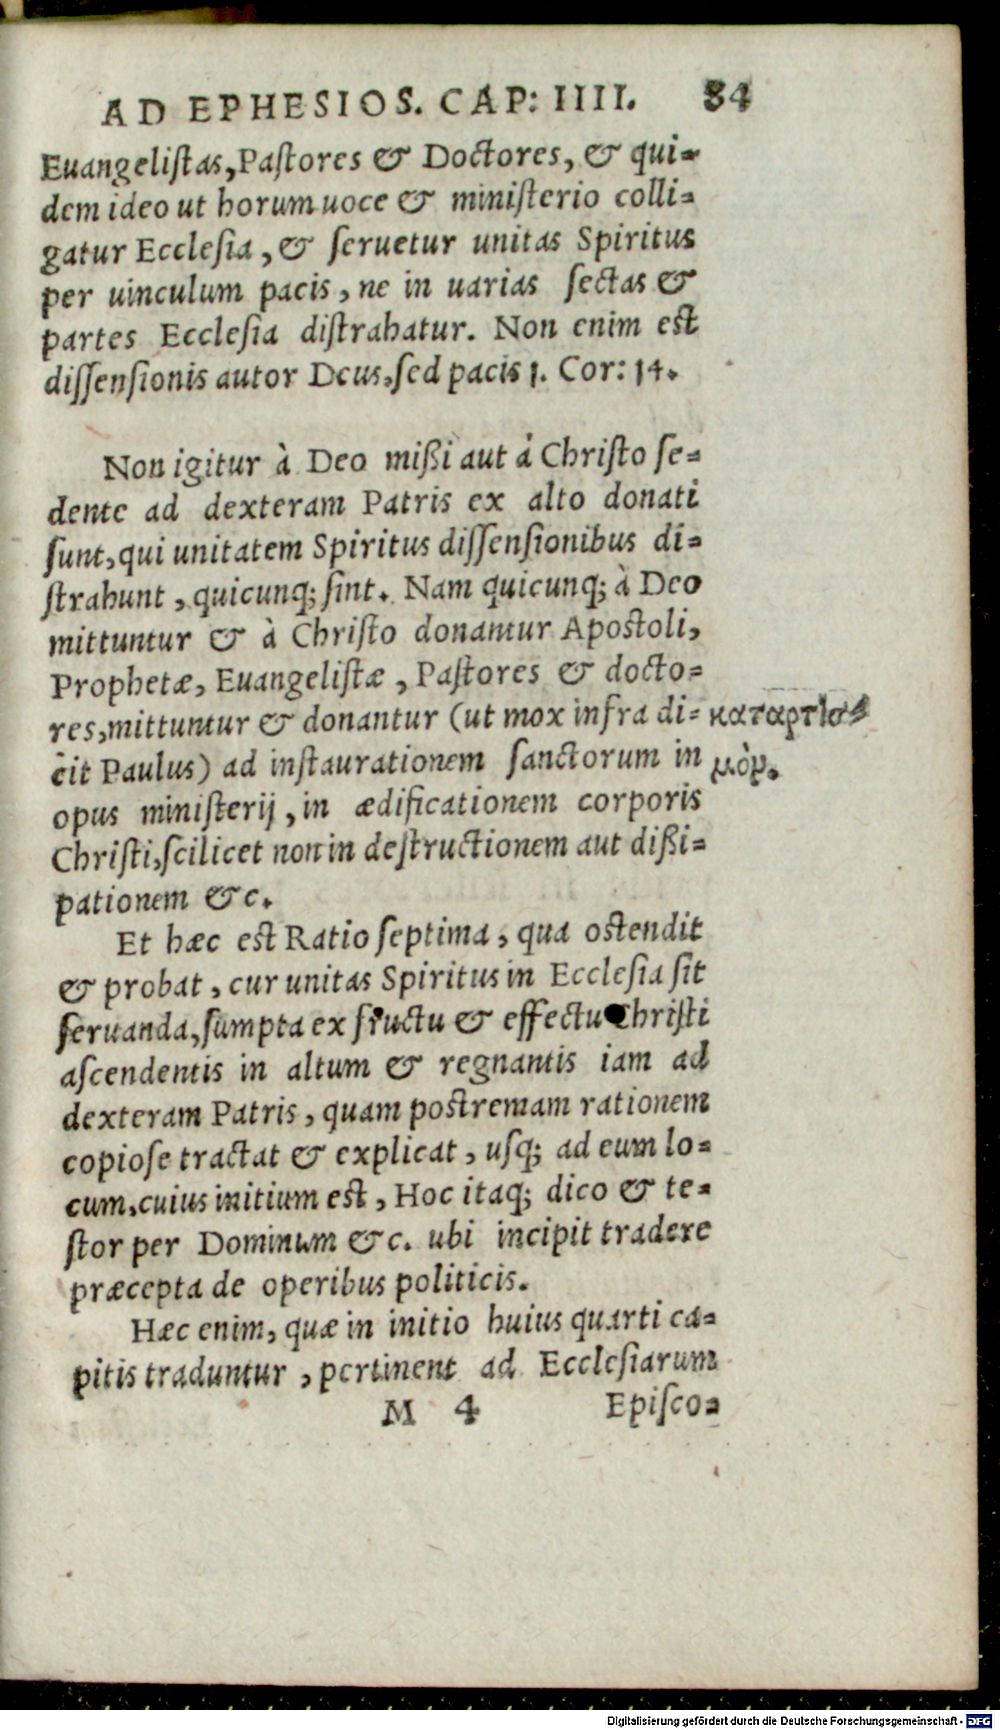 AD EPHESIOS. CAP: IIII. 84
Euangeliſtas, Paſtores & Doctores, & qui-
dem ideo ut horum uoce & miniſterio colli-
gatur Eccleſia, & ſeruetur unitas Spiritus
per uinculum pacis, ne in uarias ſectas &
partes Eccleſia diſtrahatur. Non enim eſt
diſſenſionis autor Deus, ſed pacis 1. Cor: 14.
Non igitur à Deo mißi aut à Chriſto ſe-
dente ad dexteram Patris ex alto donati
ſunt, qui unitatem Spiritus diſſenſionibus di-
ſtrahunt, quicunq; ſint. Nam quicunq; à Deo
mittuntur & à Chriſto donantur Apoſtoli,
Prophetæ, Euangeliſtæ, Paſtores & docto-
res, mittuntur & donantur (ut mox infra di- καταρτισ
cit Paulus) ad inſtaurationem ſanctorum in μὸν.
opus miniſterij, in ædificationem corporis
Chriſti, ſcilicet non in deſtructionem aut dißi-
pationem &c.
Et hæc eſt Ratio ſeptima, qua oſtendit
& probat, cur unitas Spiritus in Eccleſia ſit
ſeruanda, ſumpta ex fructu & effectu Chriſti
aſcendentis in altum & regnantis iam ad
dexteram Patris, quam poſtremam rationem
copioſe tractat & explicat, uſq; ad eum lo-
cum, cuius initium eſt, Hoc itaq; dico & te-
ſtor per Dominum &c. ubi incipit tradere
præcepta de operibus politicis.
Hæc enim, quæ in initio huius quarti ca-
pitis traduntur, pertinent ad Eccleſiarum
M 4 Epiſco-
Digitalisierung gefördert durch die Deutsche Forschungsgemeinschaft - DFG